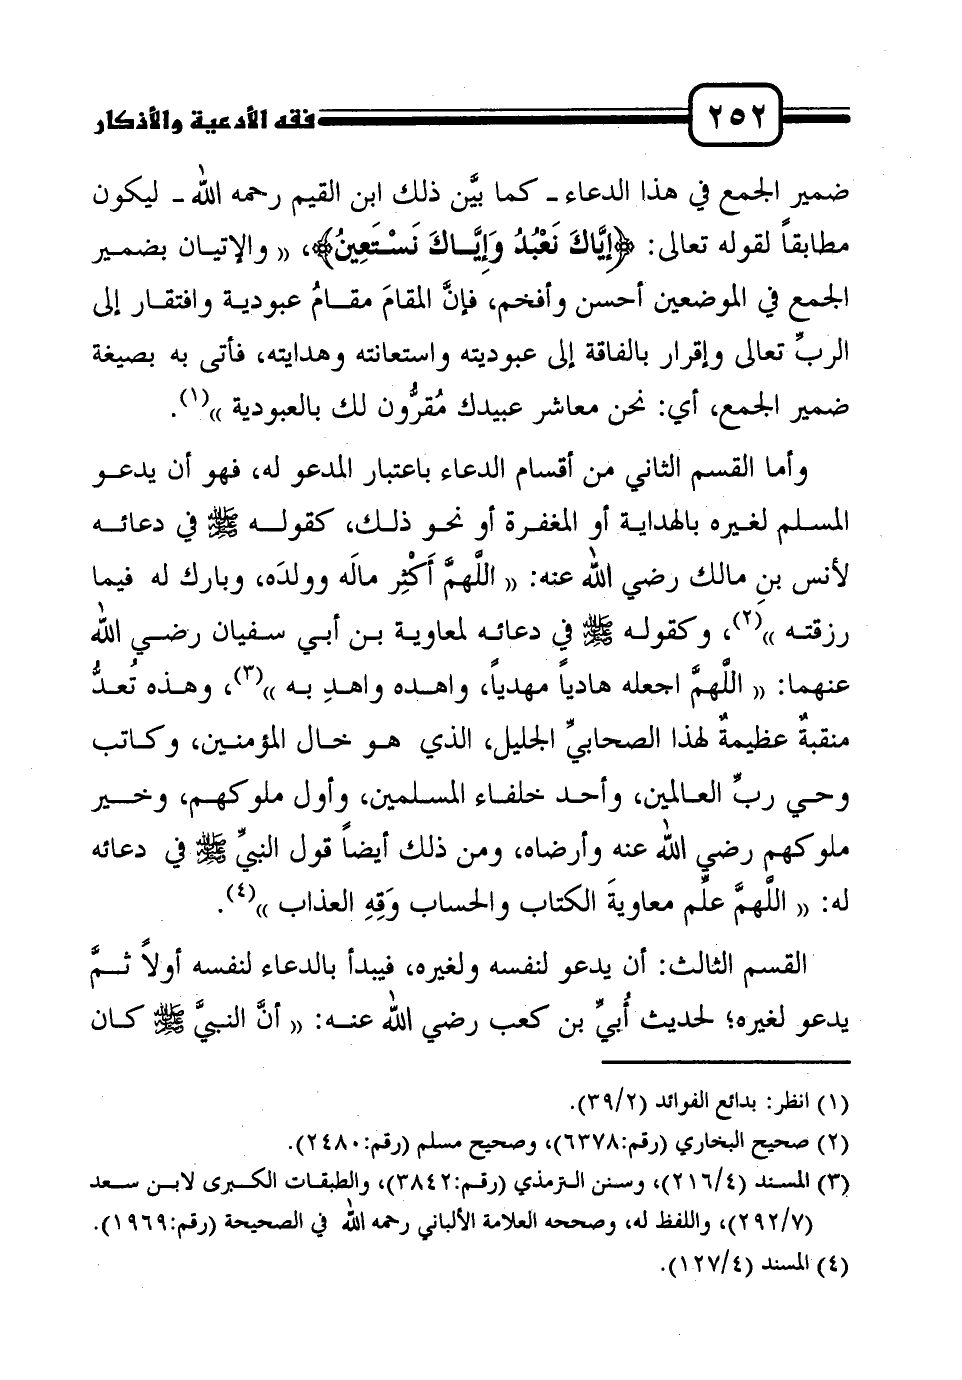 ٢٥٢ فقه الأدعية والأذكار
ضمير الجمع في هذا الدعاء ـ كما بيَّن ذلك ابن القيم رحمه الله ـ ليكون
مطابقاً لقوله تعالى: ﴿إِيَّاكَ نَعْبُدُ وَإِيَّاكَ نَسْتَعِينُ﴾، «والإتيان بضمير
الجمع في الموضعين أحسن وأفخم، فإنَّ المقامَ مقامُ عبودية وافتقار إلى
الربِّ تعالى وإقرار بالفاقة إلى عبوديته واستعانته وهدايته، فأتى به بصيغة
ضمير الجمع، أي: نحن معاشر عبيدك مُقرُّون لك بالعبودية»(١).
وأما القسم الثاني من أقسام الدعاء باعتبار المدعو له، فهو أن يدعو
المسلم لغيره بالهداية أو المغفرة أو نحو ذلك، كقوله ﷺ في دعائه
لأنس بنِ مالك رضي الله عنه: «اللَّهمَّ أَكْثِر مالَه وولدَه، وبارك له فيما
رزقته»(٢)، وكقوله ﷺ في دعائه لمعاوية بن أبي سفيان رضي الله
عنهما: «اللَّهمَّ اجعله هادياً مهدياً، واهده واهدِ به»(٣)، وهذه تُعدُّ
منقبةٌ عظيمةٌ لهذا الصحابيِّ الجليل، الذي هو خال المؤمنين، وكاتب
وحي ربِّ العالمين، وأحد خلفاء المسلمين، وأول ملوكهم، وخير
ملوكهم رضي الله عنه وأرضاه، ومن ذلك أيضاً قول النبيِّ ﷺ في دعائه
له: «اللَّهمَّ علِّم معاويةَ الكتاب والحساب وَقِهِ العذاب»(٤).
القسم الثالث: أن يدعو لنفسه ولغيره، فيبدأ بالدعاء لنفسه أولاً ثمَّ
يدعو لغيره؛ لحديث أُبيِّ بن كعب رضي الله عنه: «أنَّ النبيَّ ﷺ كان
(١) انظر: بدائع الفوائد (٣٩/٢).
(٢) صحيح البخاري (رقم:٦٣٧٨)، وصحيح مسلم (رقم:٢٤٨٠).
(٣) المسند (٢١٦/٤)، وسنن الترمذي (رقم:٣٨٤٢)، والطبقات الكبرى لابن سعد
(٢٩٢/٧)، واللفظ له، وصححه العلامة الألباني رحمه الله في الصحيحة (رقم:١٩٦٩).
(٤) المسند (١٢٧/٤).